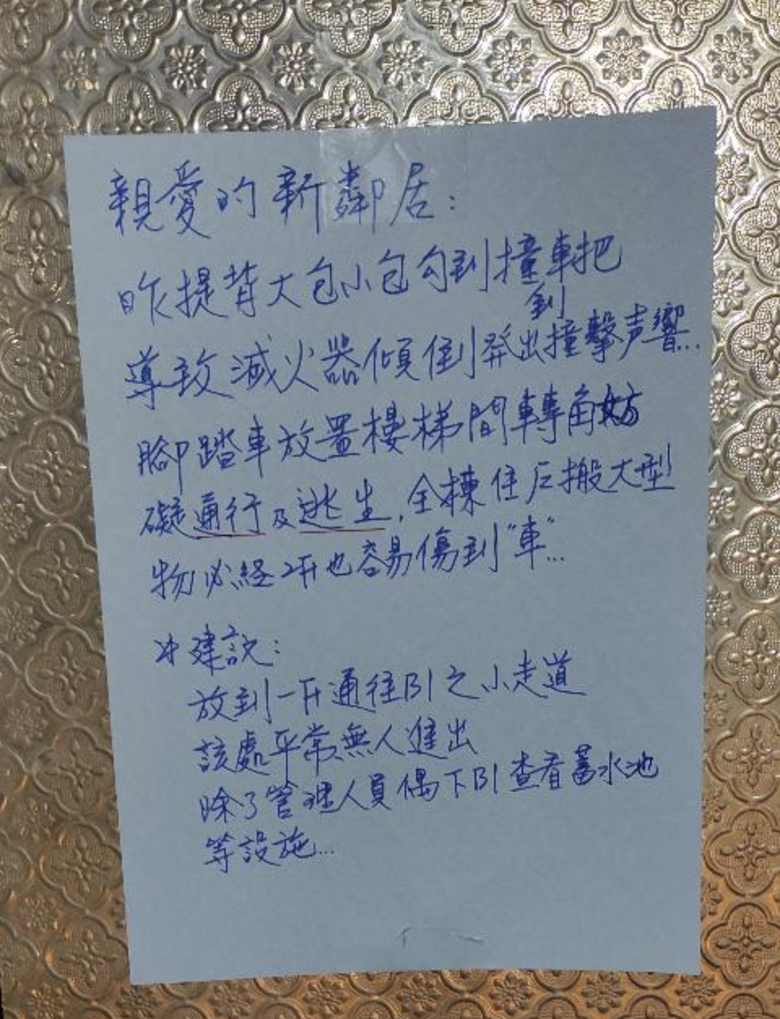 親愛的新鄰居:
昨提背大包小包勾到撞到車把
導致滅火器傾倒發出撞擊声響...
腳踏車放置樓梯間轉角妨
礙通行及逃生,全棟住戶搬大型
物必經2F也容易傷到"車"...
建議:
放到一F通往B1之小走道
該處平常無人進出
除了管理人員偶下B1查看蓄水池
等設施...